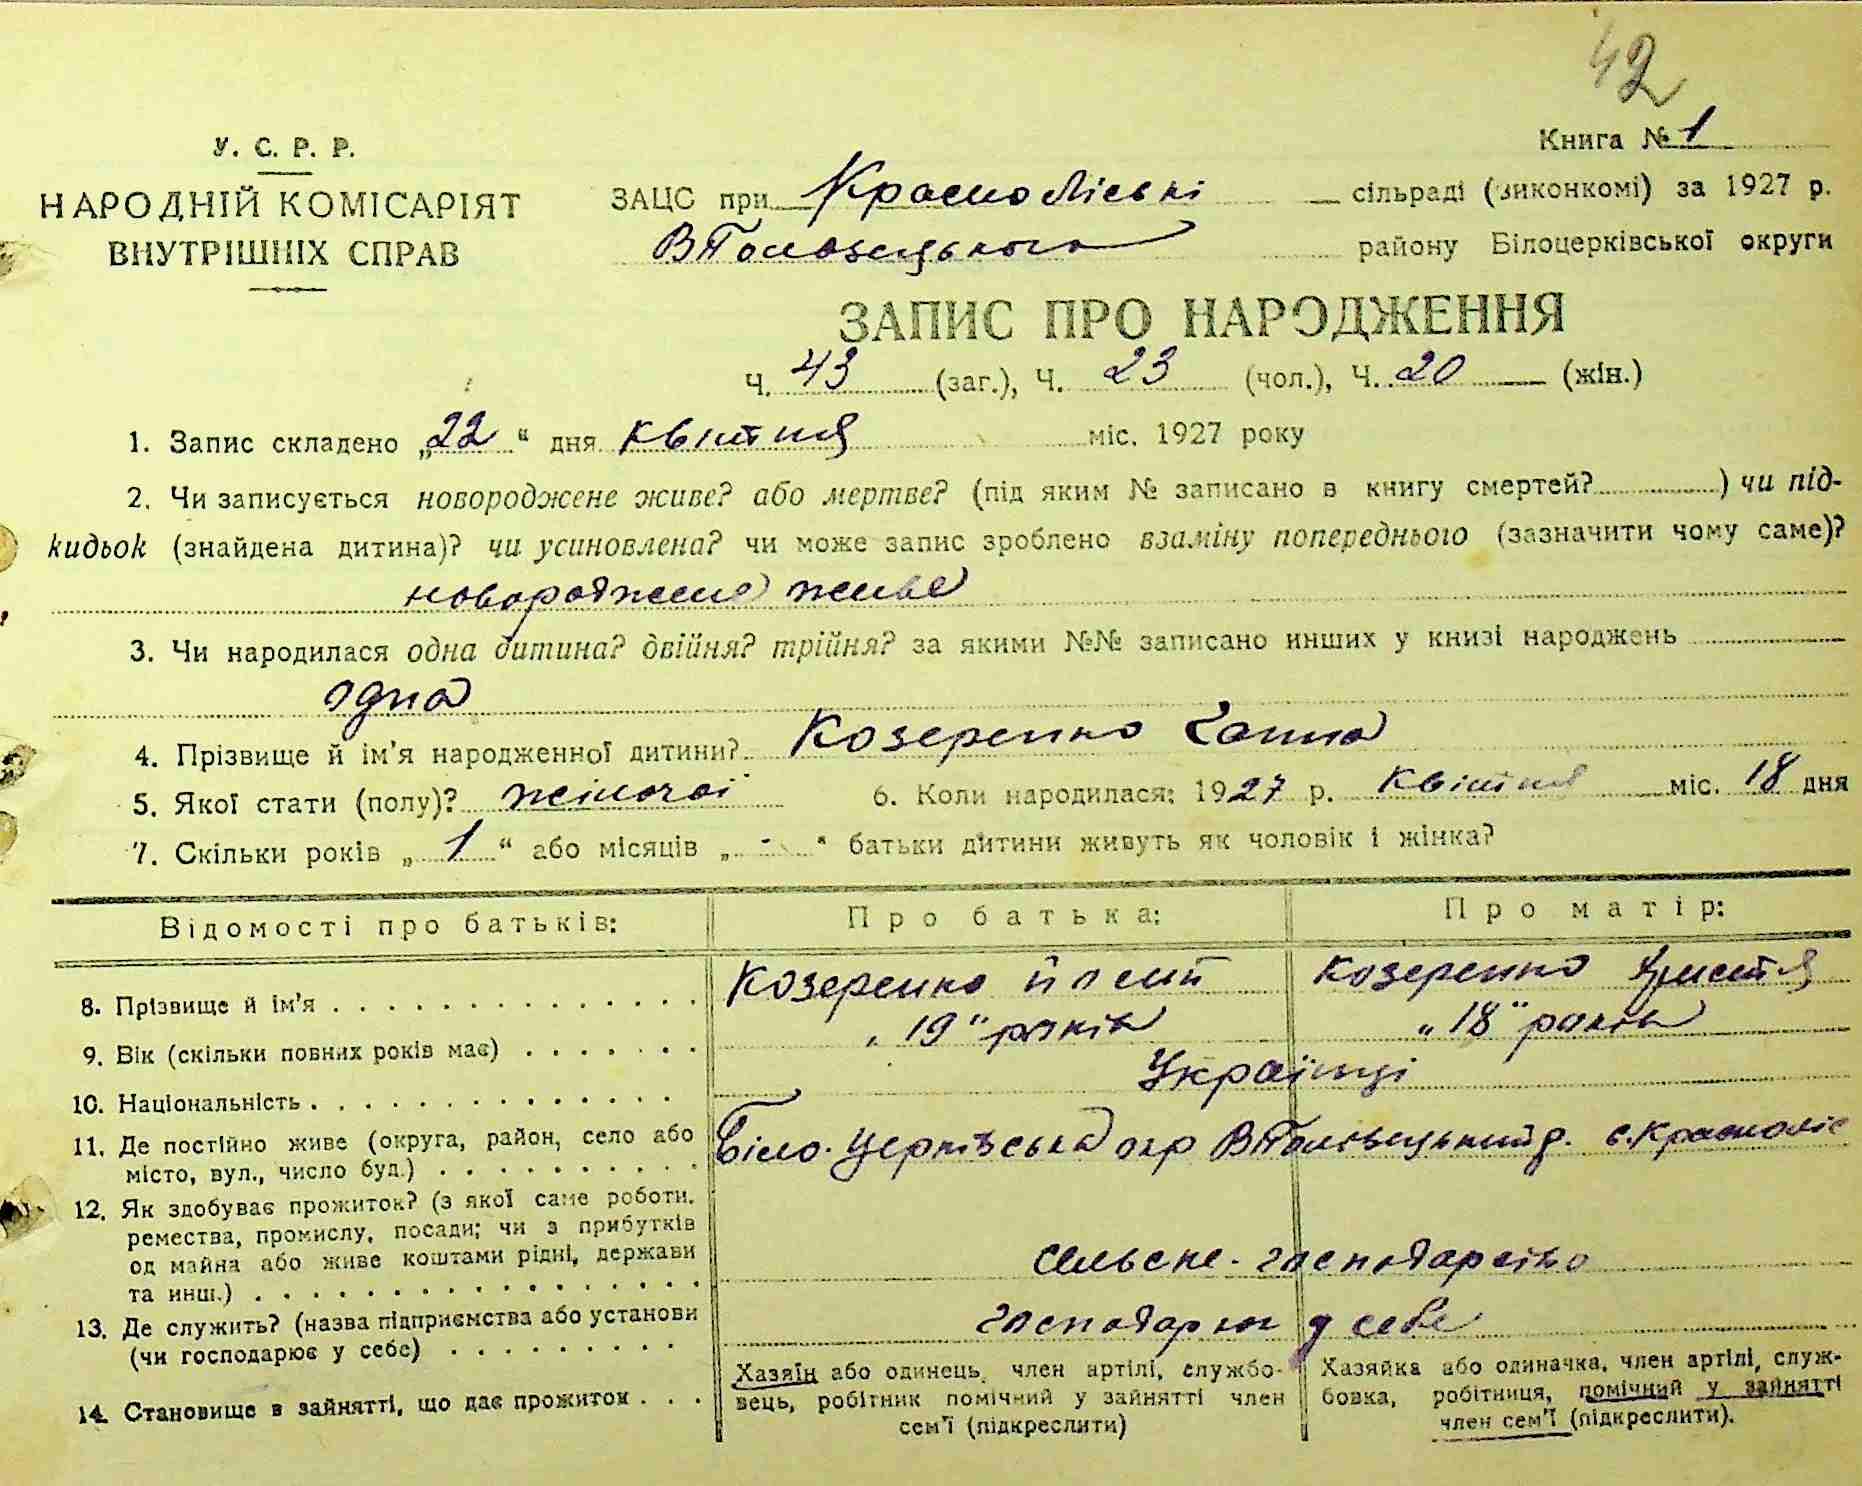 42
Книга № 1
У. С. Р. Р.
НАРОДНІЙ КОМІСАРІЯТ
ВНУТРІШНІХ СПРАВ
ЗАЦС при Красноліські сільраді (виконкомі) за 1927 р.
ВПоловецького району Білоцерківської округи
ЗАПИС ПРО НАРОДЖЕННЯ
Ч. 43 (заг.), Ч. 23 (чол.), Ч. 20 (жін.)
1. Запис складено „22“ дня квітня міс. 1927 року
2. Чи записується новороджене живе? або мертве? (під яким № записано в книгу смертей?) чи під-
кидьок (знайдена дитина)? чи усиновлена? чи може запис зроблено взаміну попереднього (зазначити чому саме)?
новороджене живе
3. Чи народилася одна дитина? двійня? трійня? за якими №№ записано инших у книзі народжень
одна
4. Прізвище й ім'я народженної дитини? Козеренко Ганна
5. Якої стати (полу)? жіночої 6. Коли народилася: 1927 р. квітня міс. 18 дня
7. Скільки років „1“ або місяців „-“ батьки дитини живуть як чоловік і жінка?
Відомості про батьків: Про батька: Про матір:
8. Прізвище й ім'я Козеренко Козеренко Христя
9. Вік (скільки повних років має) „19“ років „18“ років
10. Національність Українці
11. Де постійно живе (округа, район, село або
місто, вул., число буд.) Біло-Церківська окр ВПоловецький р. с. Краснолісі
12. Як здобуває прожиток? (з якої саме роботи,
ремества, промислу, посади; чи з прибутків
од майна або живе коштами рідні, держави
та инш.) сельске-господарство
13. Де служить? (назва підприємства або установи
(чи господарює у себе) господарює у себе
14. Становище в зайнятті, що дає прожиток
Хазяїн або одинець, член артілі, службо-
вець, робітник помічний у зайнятті член
сем'ї (підкреслити)
Хазяйка або одиначка, член артілі, служ-
бовка, робітниця, помічний у зайнятті
член сем'ї (підкреслити).